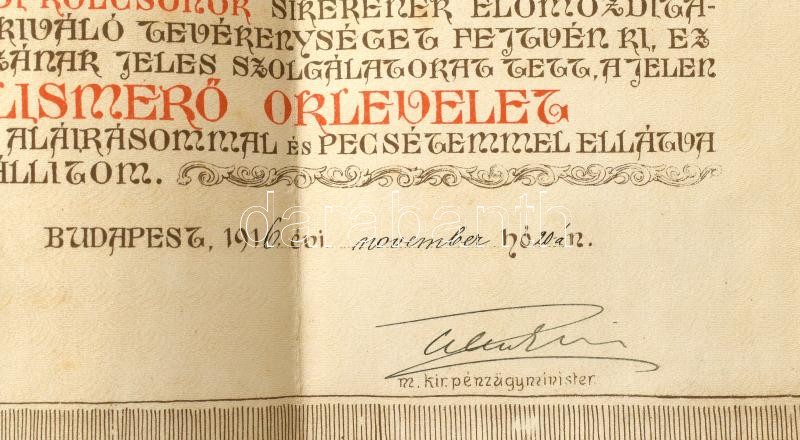 KÖLCSÖNÖK SIKERÉNEK ELŐMOZDITÁ-
KIVÁLÓ TEVÉKENYSÉGET FEJTVÉN KI, EZ
JELES SZOLGÁLATOKAT TETT, A JELEN
LISMERŐ OKLEVELET
ALÁIRÁSOMMAL és PECSÉTEMMEL ELLÁTVA
ÁLLITOM.
darabanth
BUDAPEST, 1916 évi november hó 20 án.
m. kir. pénzügyminister